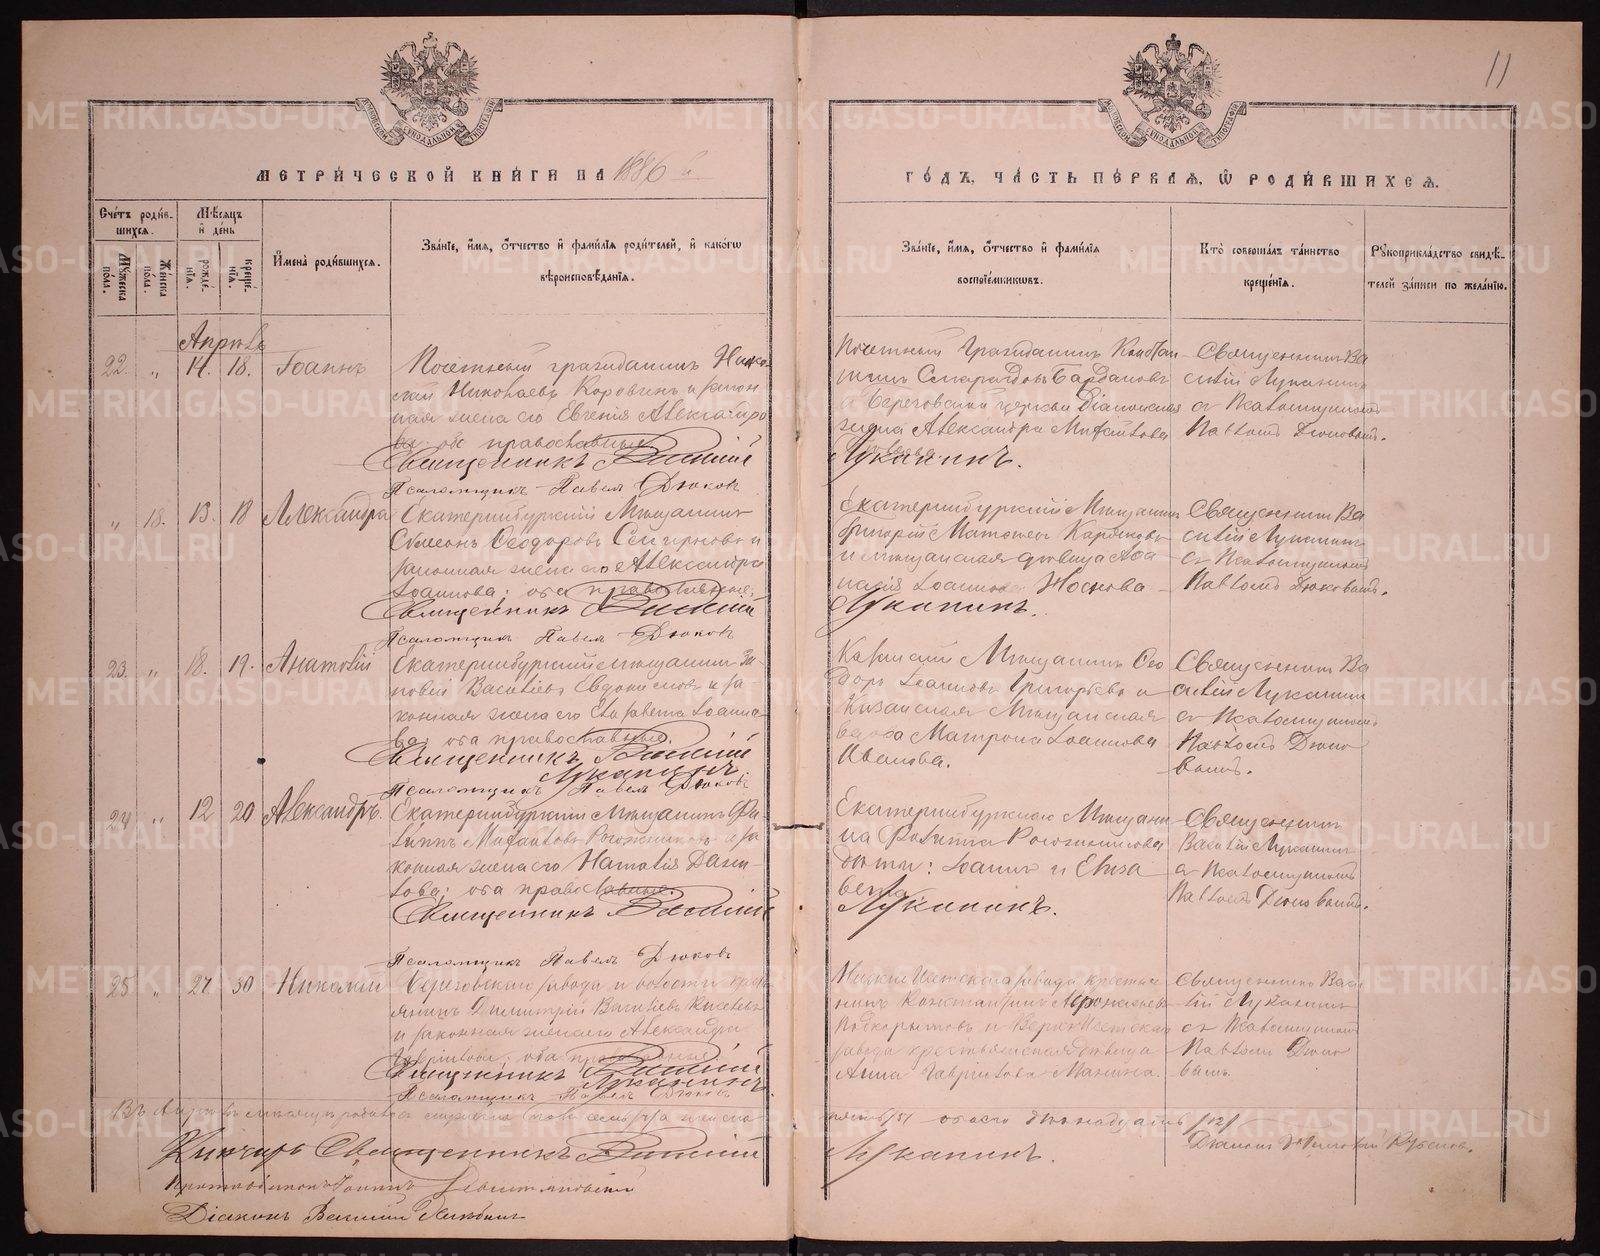 11
МОСКОВСКОЙ СѴНОДАЛЬНОЙ ТИПОГРАФІИ
МОСКОВСКОЙ СѴНОДАЛЬНОЙ ТИПОГРАФІИ
МЕТРИ́ЧЕСКОЙ КНИ́ГИ НА 1886 й
ГО́ДЪ, ЧА́СТЬ ПЕ́РВАѦ, Ѿ РОДИ́ВШИХСѦ.
Сче́тъ роди́в-
шихсѧ.
Мѣ́сѧцъ
и҆ де́нь
Мꙋ́жеска
пола̀.
Же́нска
пола̀.
рожде́-
нїѧ.
креще́-
нїѧ.
И҆мена̀ роди́вшихсѧ.
Зва́нїе, и҆́мѧ, ѻ҆́тчество и҆ фами́лїѧ роди́телей, и҆ како́гѡ
вѣроисповѣ́данїѧ.
Зва́нїе, и҆́мѧ, ѻ҆́тчество и҆ фами́лїѧ
воспрїе́мникѡвъ.
Кто̀ соверша́лъ та́инство
креще́нїѧ.
Рꙋкоприкла́дство свидѣ́-
телей за́писи по жела́нїю.
Апрѣль
22. " 14. 18. Іоаннъ
Почетный гражданинъ Нико-
лай Николаевъ Коровинъ и закон
ная жена его Евгенія Александро
ва; оба православные.
Священникъ Василій
Псаломщикъ Павелъ Дюковъ
Почетный Гражданинъ Констан-
тинъ Смарагдовъ Бардаковъ
и Березовской церкви Діаконская
жена Александра Михайлова
Луканинъ.
Священникъ Ва
силій Луканинъ
съ Псаломщикомъ
Павломъ Дюковымъ.
" 18. 13. 18 Александра
Екатеринбургскій Мѣщанинъ
Симеонъ Ѳеодоровъ и
законная жена его Александра
Іоаннова; оба православные.
Священникъ Василій
Псаломщикъ Павелъ Дюковъ
Екатеринбургскій Мѣщанинъ
Григорій
и мѣщанская дѣвица Аѳа
насія Іоаннова Носкова
Луканинъ.
Священникъ Ва
силій Луканинъ
съ Псаломщикомъ
Павломъ Дюковымъ.
23. " 18. 19. Анатолій
Екатеринбургскій мѣщанинъ Зи-
новій Васильевъ Евдокимовъ и за
конная жена его Елизавета Іоанно-
ва; оба православные.
Священникъ Василій
Луканинъ
Псаломщикъ Павелъ Дюковъ
Казанскій Мѣщанинъ Ѳео
доръ Іоанновъ Григорьевъ и
Казанская Мѣщанская
вдова Матрона Іоаннова
Иванова.
Священникъ Ва
силій Луканинъ
съ Псаломщикомъ
Павломъ Дюко
вымъ.
24 " 12 20 Александръ.
Екатеринбургскій Мѣщанинъ Фи-
липпъ Михайловъ Рогожниковъ и за
конная жена его Наталія Дани-
лова; оба православные.
Священникъ Василій
Псаломщикъ Павелъ Дюковъ
Екатеринбургскаго Мѣщани
на Филиппа Рогожникова
дѣти: Іоаннъ и Елиза
вета
Луканинъ.
Священникъ
Василій Луканинъ
съ Псаломщикомъ
Павломъ Дюковымъ.
25 " 27 30 Николай
Березовскаго завода и волости кресть
янинъ Димитрій Васильевъ Киселевъ
и законная жена его Александра
Гаврилова; оба православные.
Священникъ Василій
Луканинъ
Псаломщикъ Павелъ Дюковъ
Нижне Исетскаго завода крестья
нинъ Константинъ
Подкорытовъ и Верхъ Исетскаго
завода крестьянская дѣвица
Анна Гаврилова Макина.
Священникъ Васи
лій Луканинъ
съ Псаломщикомъ
Павломъ Дюко
вымъ.
Въ Апрѣлѣ мѣсяцѣ родилось мужеска пола семь /7/ а женска
пять /5/ обоего двѣнадцать /12/
Ключарь Священникъ Василій
Луканинъ.
Протодіаконъ Іоаннъ
Діаконъ Василій
Діаконъ
METRIKI.GASO-URAL.RU